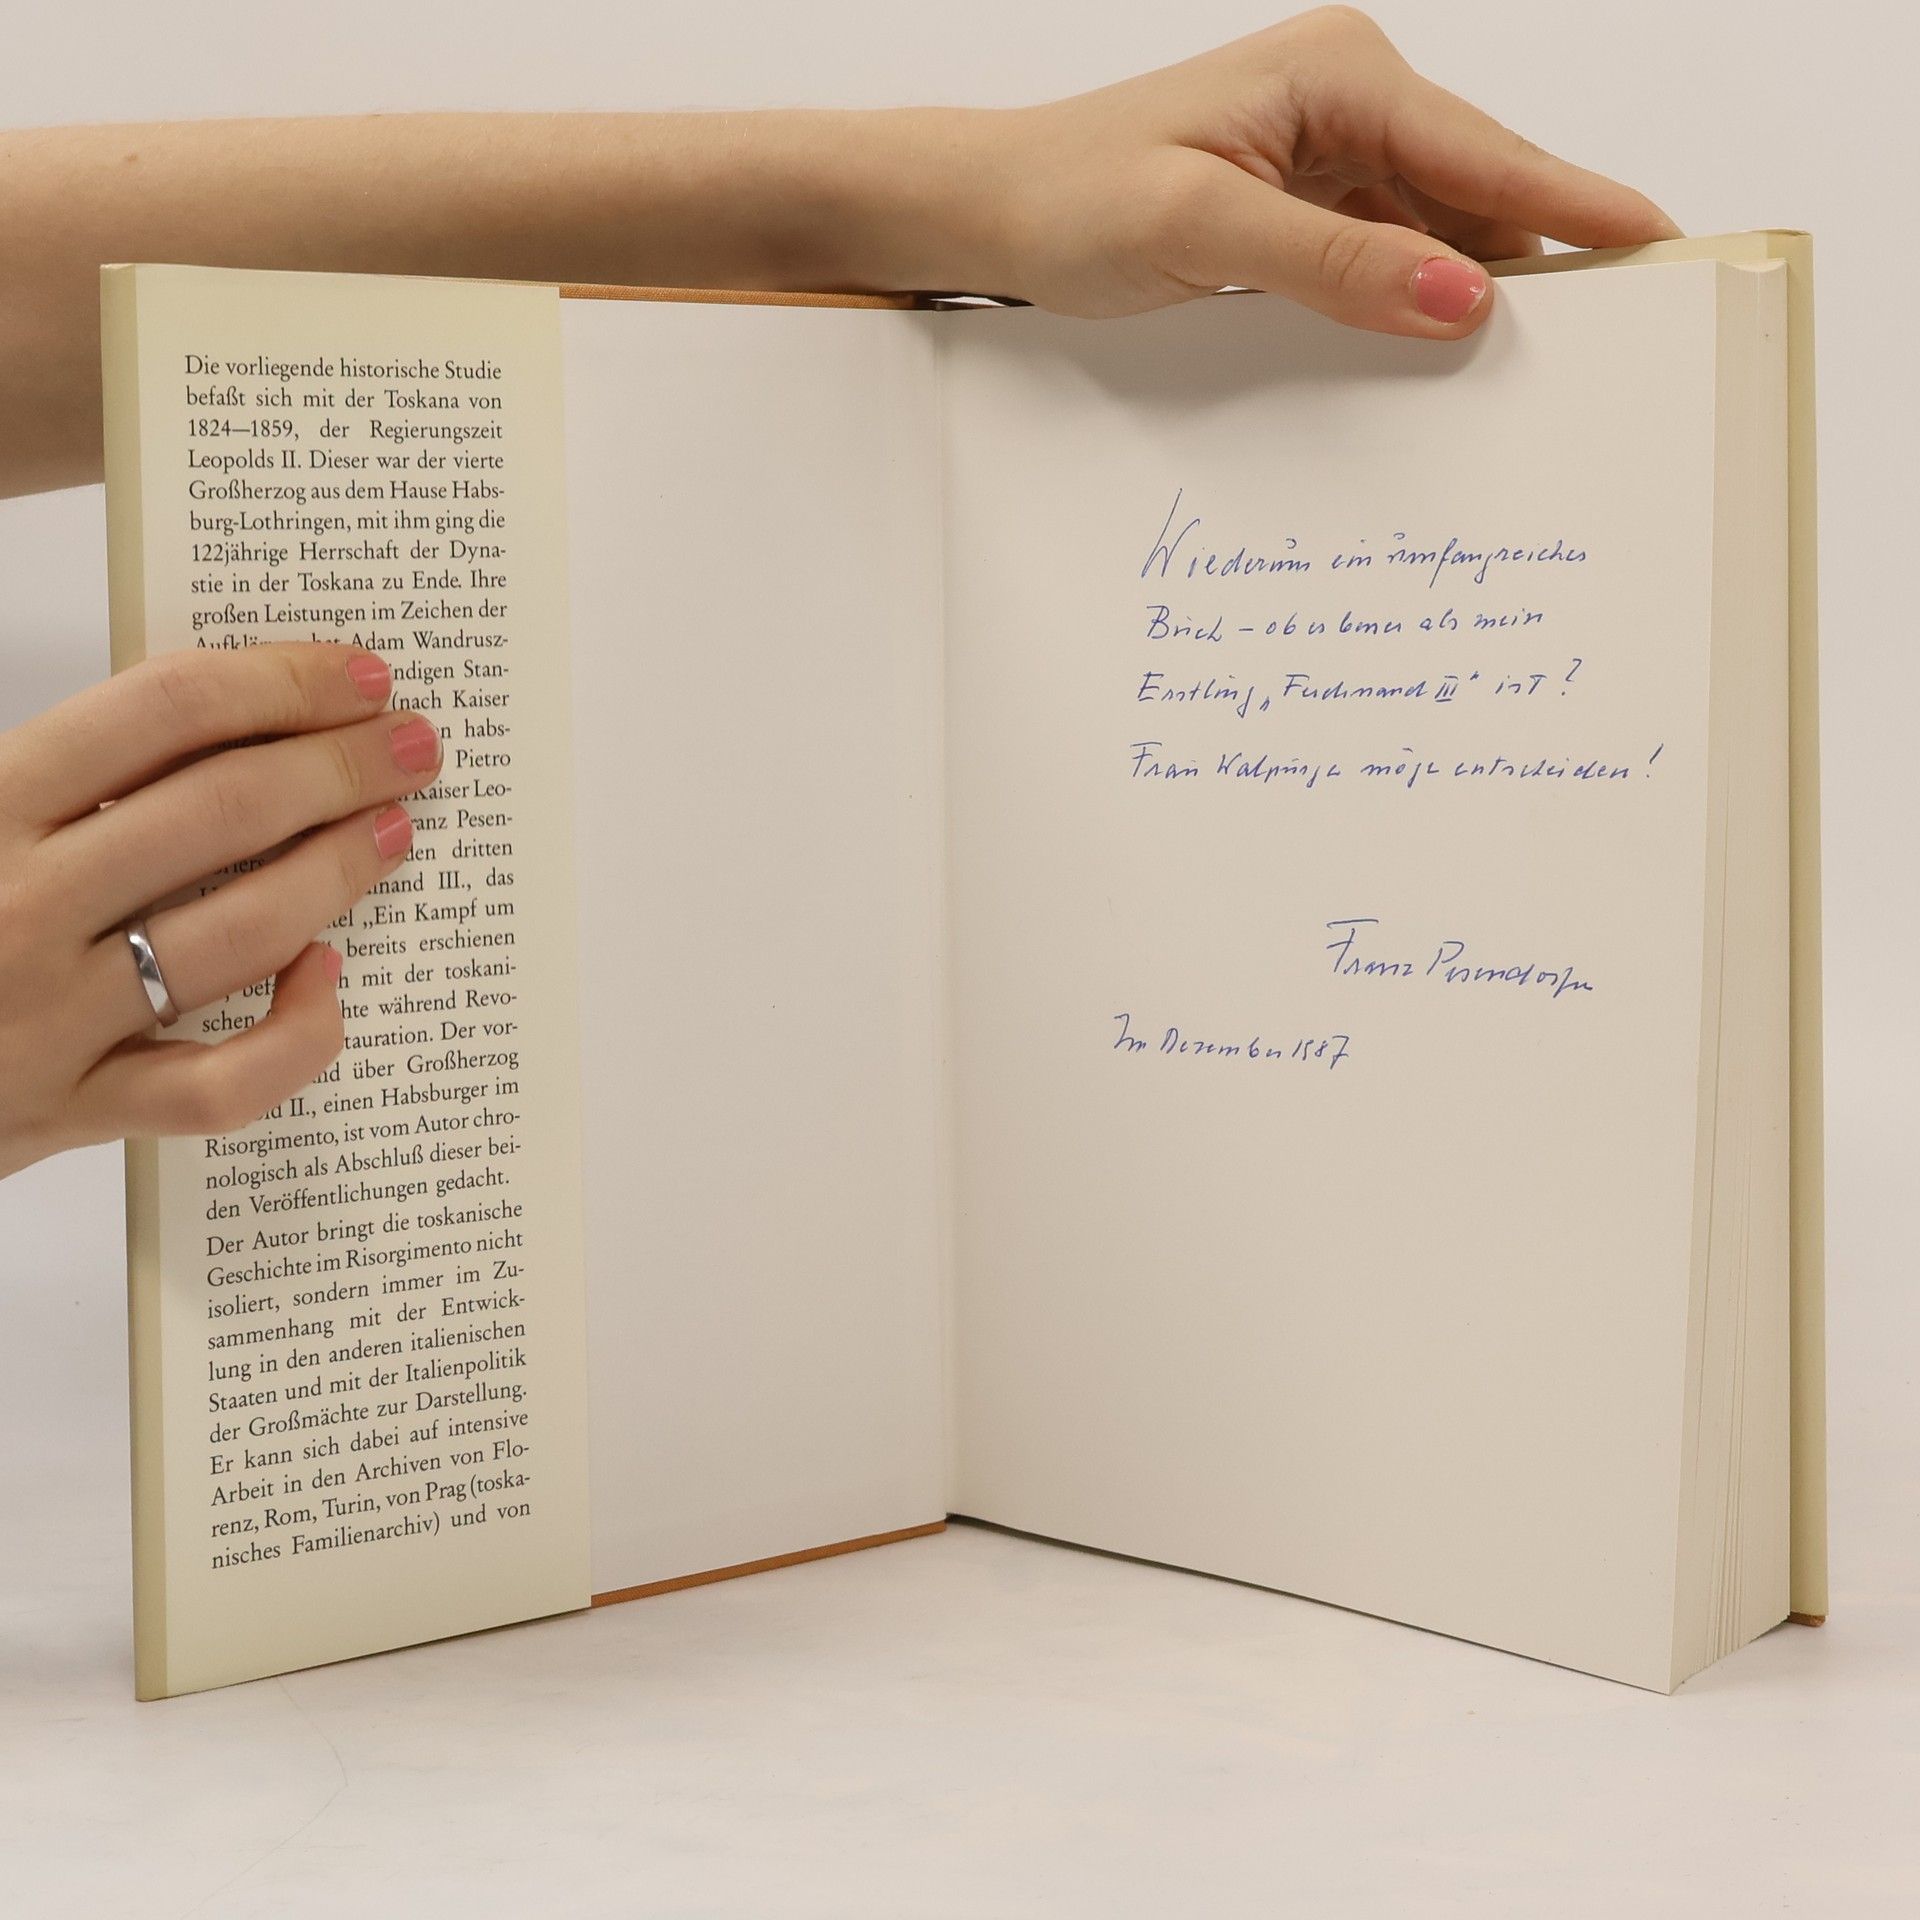 Die vorliegende historische Studie
befaßt sich mit der Toskana von
1824—1859, der Regierungszeit
Leopolds II. Dieser war der vierte
Großherzog aus dem Hause Habs-
burg-Lothringen, mit ihm ging die
122jährige Herrschaft der Dyna-
stie in der Toskana zu Ende. Ihre
großen Leistungen im Zeichen der
Adam Wandrusz-
ndigen Stan-
(nach Kaiser
n habs-
Pietro
Kaiser Leo-
ranz Pesen-
den dritten
nand III., das
tel „Ein Kampf um
bereits erschienen
h mit der toskani-
schen hte während Revo-
tauration. Der vor-
nd über Großherzog
ld II., einen Habsburger im
Risorgimento, ist vom Autor chro-
nologisch als Abschluß dieser bei-
den Veröffentlichungen gedacht.
Der Autor bringt die toskanische
Geschichte im Risorgimento nicht
isoliert, sondern immer im Zu-
sammenhang mit der Entwick-
lung in den anderen italienischen
Staaten und mit der Italienpolitik
der Großmächte zur Darstellung.
Er kann sich dabei auf intensive
Arbeit in den Archiven von Flo-
renz, Rom, Turin, von Prag (toska-
nisches Familienarchiv) und von
Wiederum ein umfangreiches
Buch – ob es besser als mein
Erstling „Ferdinand III" ist?
Frau Walpurga möge entscheiden!
Franz Pesendorfer
Im Dezember 1987